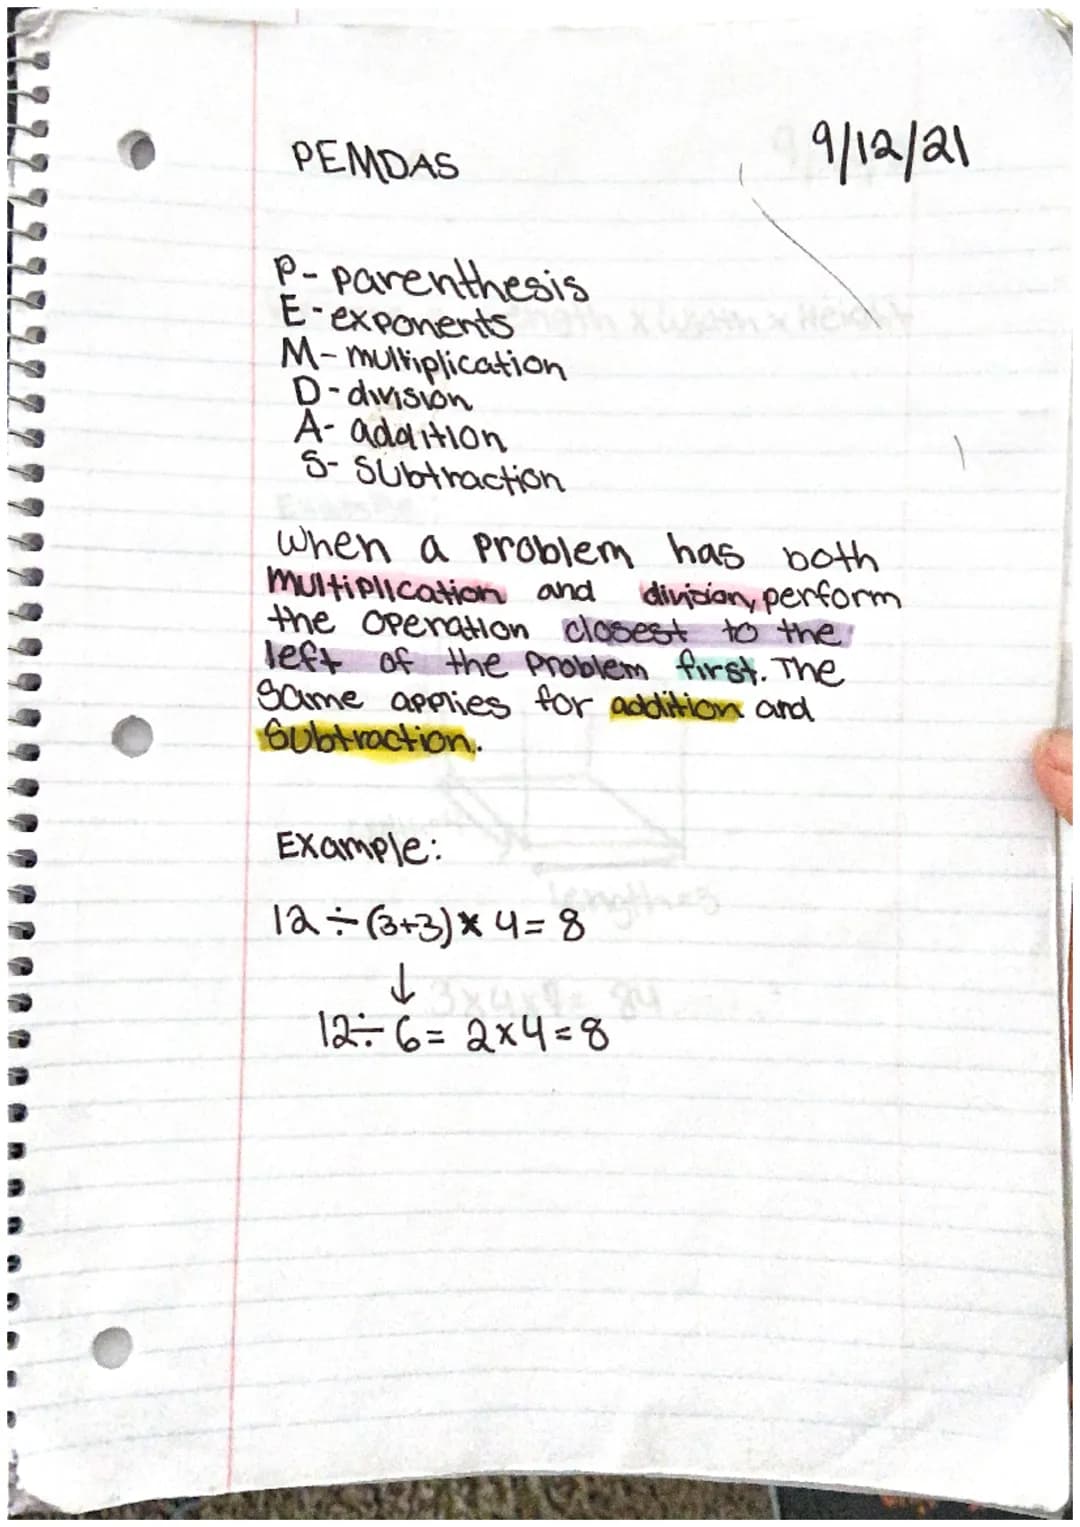 PEMDAS 9/12/21
P- parenthesis
E- exponents
M- multiplication
D- division
A- addition
S- subtraction
When a problem has both
multiplication and division, perform
the operation closest to the
left of the problem first. The
same applies for addition and
subtraction.
Example:
12 ÷ (3+3) × 4 = 8
↓
12 ÷ 6 = 2 x 4 = 8